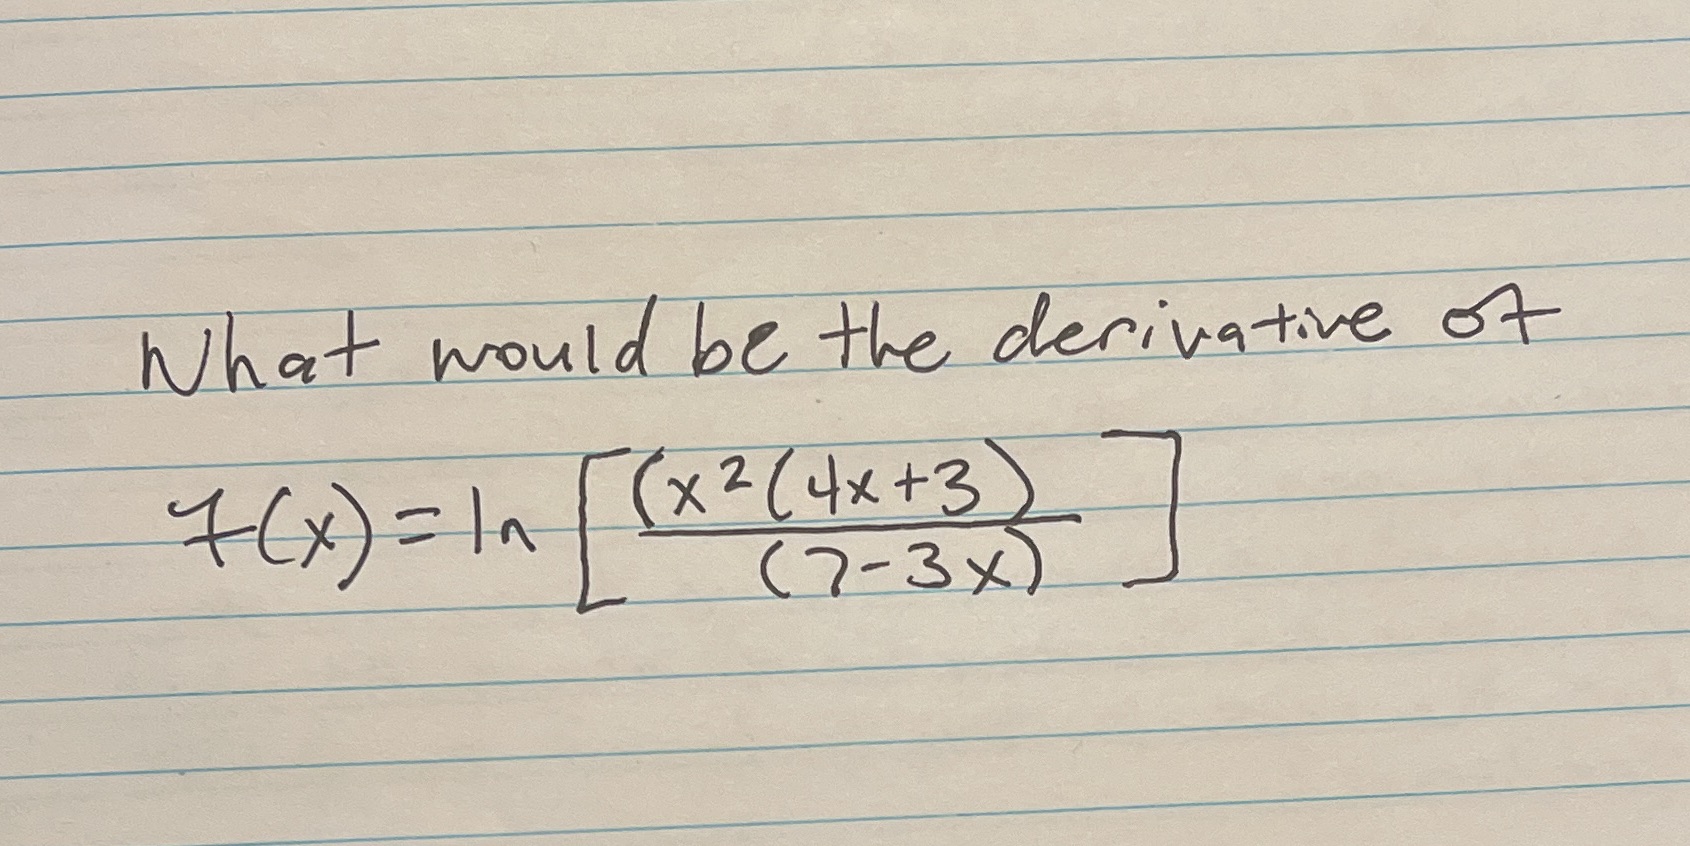 What would be the derivative of
f(x) = ln [ (x²(4x+3) / (7-3x) ]